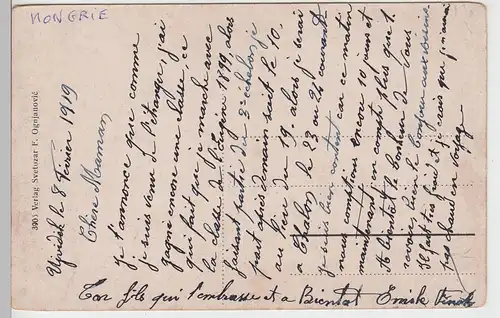 HONGRIE
3905 Verlag Svetozar F. Ognjanović
Ujvidek le 8 Fevrier 1919
Chere Maman
je t'annonce que comme
je suis venu de l'étranger, j'ai
gagné encore une classe ce
qui fait que je marche avec
la classe de l'échelon 1899, alors
faisant partie du 3e échelon, je
part après demain soit le 10
au lieu du 19 alors je serai
a Chalon le 23 ou 24 courant
je suis bien content car ce matin
nous comptions encore 10 jours et
maintenant on compte plus que 1.
A bientôt le bonheur de vous
revoir, bien le bonjour aux voisins
Il fait très froid et je crois que j'aurai
pas chaud en voyage
Ton fils qui t'embrasse et a Bientot Emile